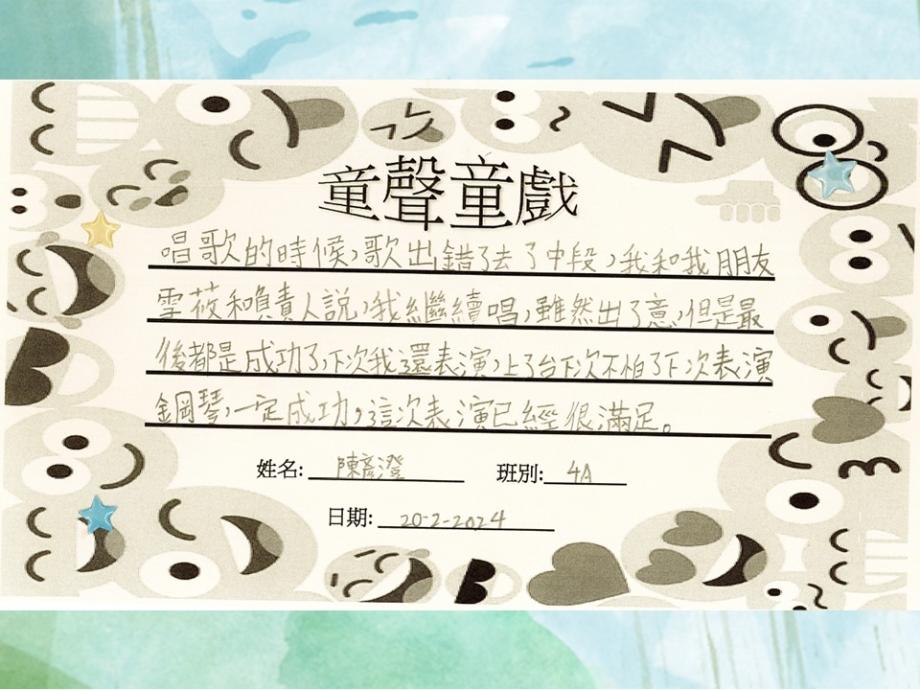 童聲童戲
唱歌的時候，歌出錯了去了中段，我和我朋友
雪莜和負責人説，我繼續唱，雖然出了意，但是最
後都是成功了，下次我還表演，上了台下次不怕了下次表演
鋼琴，一定成功，這次表演已經很滿足。
姓名: 陳彥澄 班別: 4A
日期: 20-2-2024